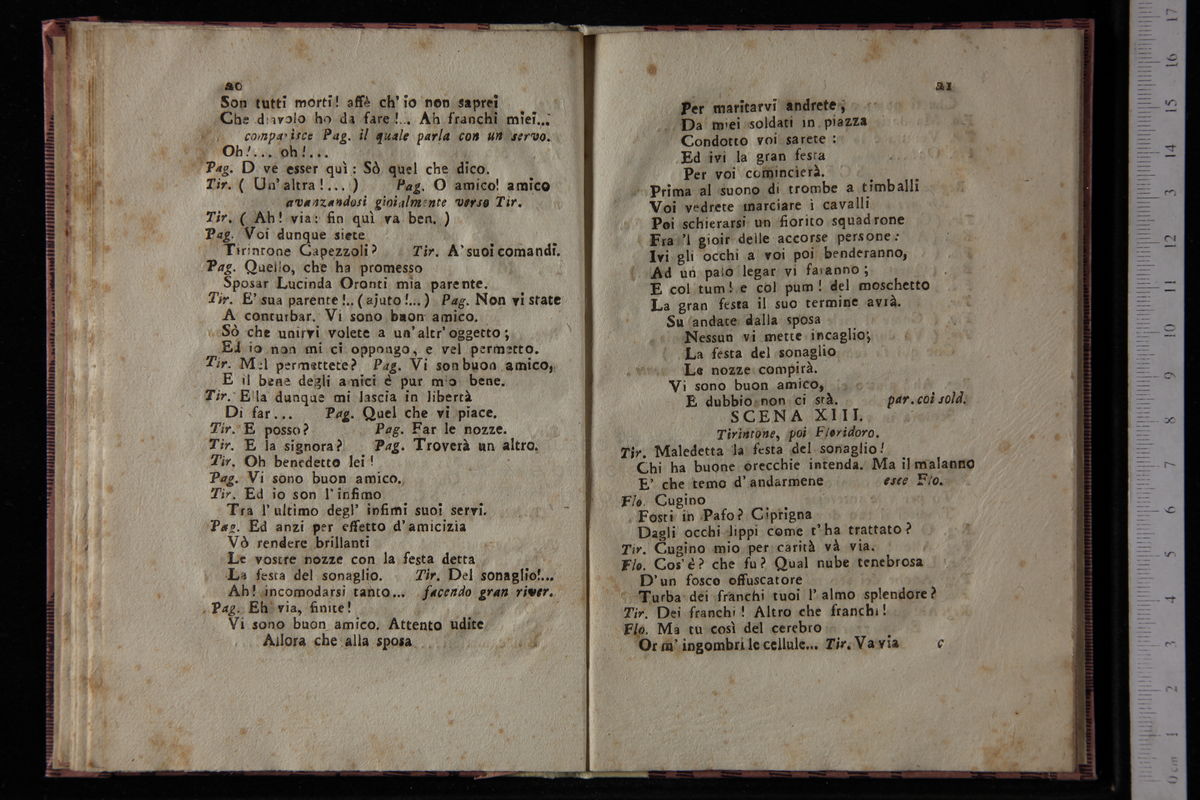 20
Son tutti morti! affè ch' io non saprei
Che diavolo ho da fare!.. Ah franchi miei...
comparisce Pag. il quale parla con un servo.
Oh!... oh!...
Pag. D ve esser quì: Sò quel che dico.
Tir. ( Un' altra!... ) Pag. O amico! amico
avanzandosi gioialmente verso Tir.
Tir. ( Ah! via: fin quì va ben. )
Pag. Voi dunque siete
Tirintone Capezzoli? Tir. A' suoi comandi.
Pag. Quello, che ha promesso
Sposar Lucinda Oronti mia parente.
Tir. E' sua parente!.. (ajuto!...) Pag. Non vi state
A conturbar. Vi sono buon amico.
Sò che unirvi volete a un' altr' oggetto;
Ed io non mi ci oppongo, e vel permetto.
Tir. Mel permettete? Pag. Vi son buon amico,
E il bene degli amici è pur mio bene.
Tir. Ella dunque mi lascia in libertà
Di far... Pag. Quel che vi piace.
Tir. E posso? Pag. Far le nozze.
Tir. E la signora? Pag. Troverà un altro.
Tir. Oh benedetto lei!
Pag. Vi sono buon amico.
Tir. Ed io son l' infimo
Tra l' ultimo degl' infimi suoi servi.
Pag. Ed anzi per effetto d' amicizia
Vò rendere brillanti
Le vostre nozze con la festa detta
La festa del sonaglio. Tir. Del sonaglio!...
Ah! incomodarsi tanto... facendo gran river.
Pag. Eh via, finite!
Vi sono buon amico. Attento udite
Allora che alla sposa
21
Per maritarvi andrete,
Da miei soldati in piazza
Condotto voi sarete:
Ed ivi la gran festa
Per voi comincierà.
Prima al suono di trombe a timballi
Voi vedrete marciare i cavalli
Poi schierarsi un fiorito squadrone
Fra 'l gioir delle accorse persone:
Ivi gli occhi a voi poi benderanno,
Ad un palo legar vi faranno;
E col tum! e col pum! del moschetto
La gran festa il suo termine avrà.
Su andate dalla sposa
Nessun vi mette incaglio;
La festa del sonaglio
Le nozze compirà.
Vi sono buon amico,
E dubbio non ci stà. par. coi sold.
SCENA XIII.
Tirintone, poi Floridoro.
Tir. Maledetta la festa del sonaglio!
Chi ha buone orecchie intenda. Ma il malanno
E' che temo d' andarmene esce Flo.
Flo. Cugino
Fosti in Pafo? Ciprigna
Dagli occhi lippi come t' ha trattato?
Tir. Cugino mio per carità và via.
Flo. Cos' è? che fu? Qual nube tenebrosa
D' un fosco offuscatore
Turba dei franchi tuoi l' almo splendore?
Tir. Dei franchi! Altro che franchi!
Flo. Ma tu così del cerebro
Or m' ingombri le cellule... Tir. Va via
c
0 cm 1 2 3 4 5 6 7 8 9 10 11 12 13 14 15 16 17